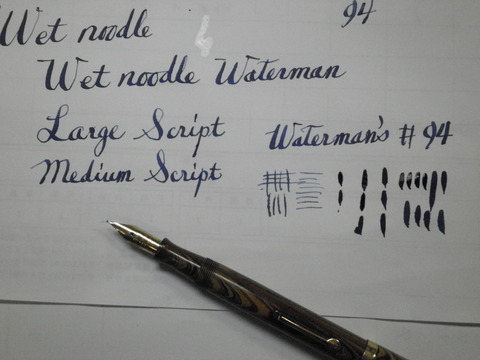 94
Wet noodle
Wet noodle Waterman
Large Script
Waterman's # 94
Medium Script